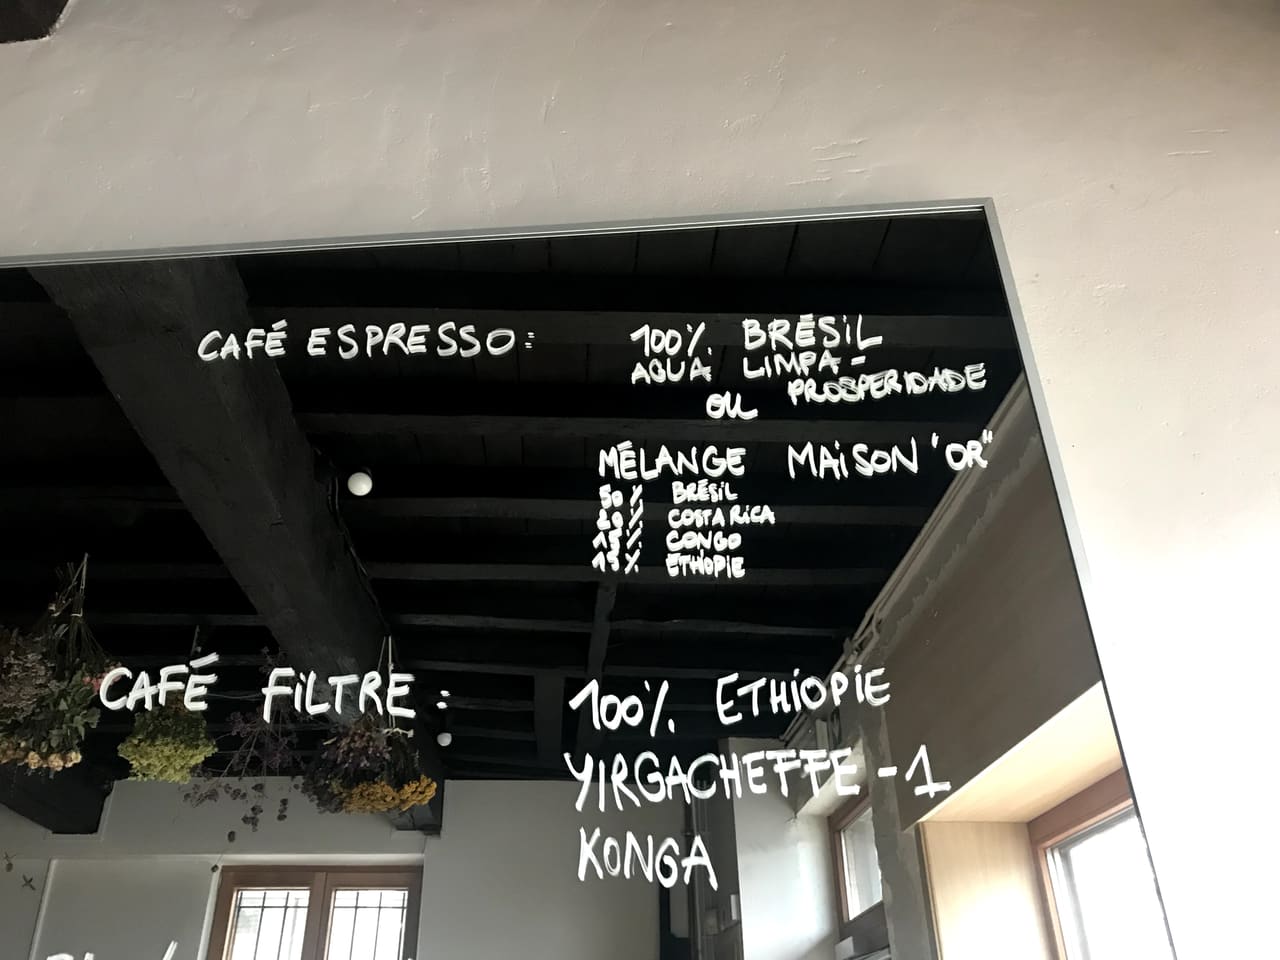 CAFÉ ESPRESSO: 100% BRÉSIL
AGUA LIMPA -
PROSPERIDADE
OU
MÉLANGE MAISON "OR"
50% BRÉSIL
20% COSTA RICA
15% CONGO
15% ETHIOPIE
CAFÉ FILTRE: 100% ETHIOPIE
YIRGACHEFFE - 1
KONGA